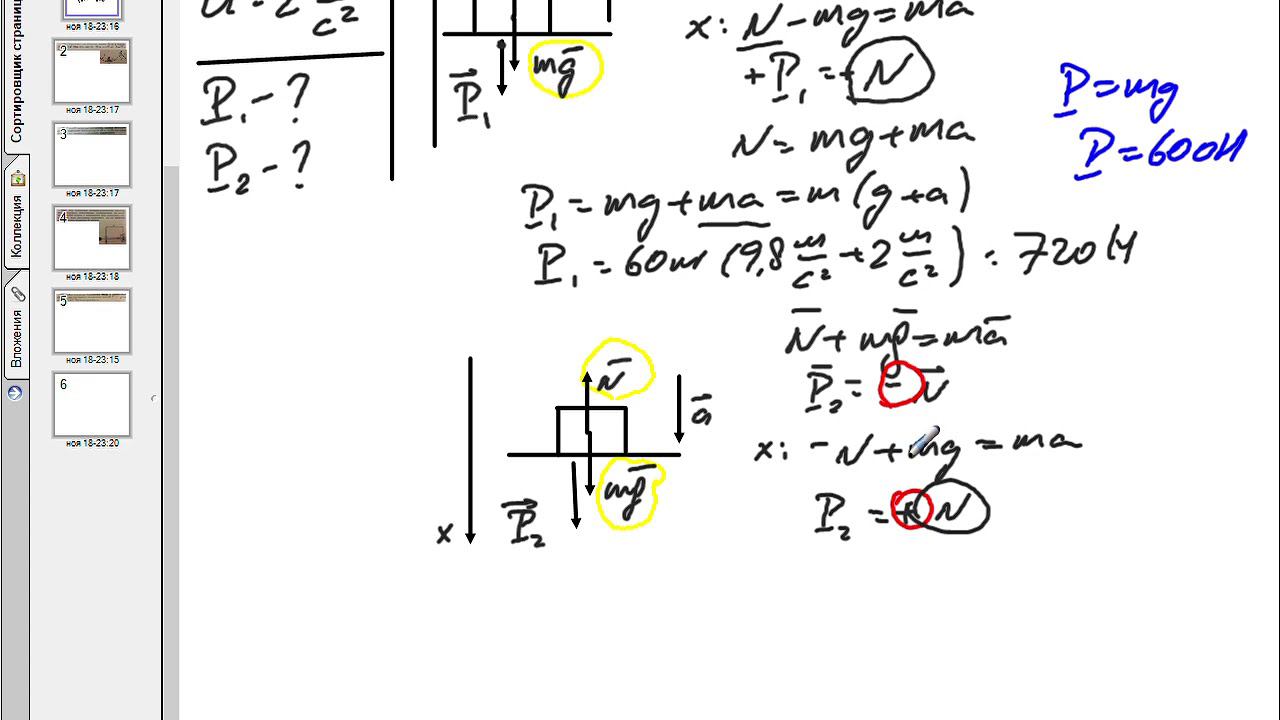 Сортировщик страниц
Коллекция
Вложения
ноя 18-23:16
2
ноя 18-23:17
3
ноя 18-23:17
4
ноя 18-23:18
5
ноя 18-23:15
6
ноя 18-23:20
a = 2 м/с²
P₁ - ?
P₂ - ?
mg
P₁
x: N - mg = ma
+P₁ = +N
N = mg + ma
P₁ = mg + ma = m(g + a)
P₁ = 60кг (9,8 м/с² + 2 м/с²) = 720 Н
P = mg
P = 600Н
N
a
mg
x
P₂
N + mg = ma
P₂ = - N
x: - N + mg = ma
P₂ = + N